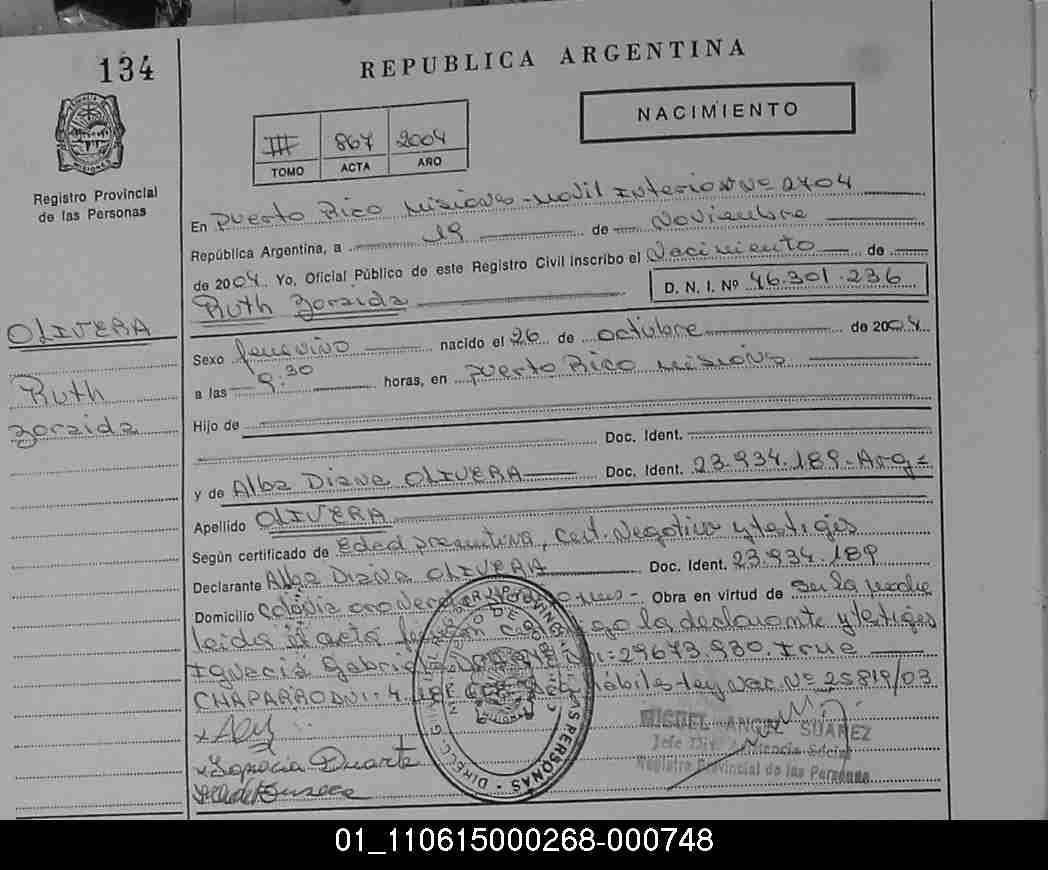 134
REPUBLICA ARGENTINA
NACIMIENTO
III 867 2004
TOMO ACTA AÑO
Registro Provincial
de las Personas
En Puerto Rico Misiones - Movil Interior Nº 2704
República Argentina, a 19 de Noviembre
de 2004. Yo, Oficial Público de este Registro Civil inscribo el Nacimiento de
Ruth Zoraida D. N. I. Nº 46.301.236
OLIVERA
Ruth
Zoraida
Sexo femenino nacido el 26 de octubre de 2004
a las 9:30 horas, en Puerto Rico Misiones
Hijo de
Doc. Ident.
y de Alba Diana OLIVERA Doc. Ident. 23.934.189-Arg
Apellido OLIVERA
Según certificado de Edad presuntiva, Cert. Negativo y testigos
Declarante Alba Diana OLIVERA Doc. Ident. 23.934.189
Domicilio Colonia Obra en virtud de ser la madre
leida el acta firman conmigo la declarante y testigos
Ignacia Gabriela 29673.930. Irne
CHAPARRO DNI: 4 Ley Nac. Nº 25819/03
Ignacia Duarte
MIGUEL ANGEL SUAREZ
Jefe Asistencia Social
Registro Provincial de las Personas
01_110615000268-000748